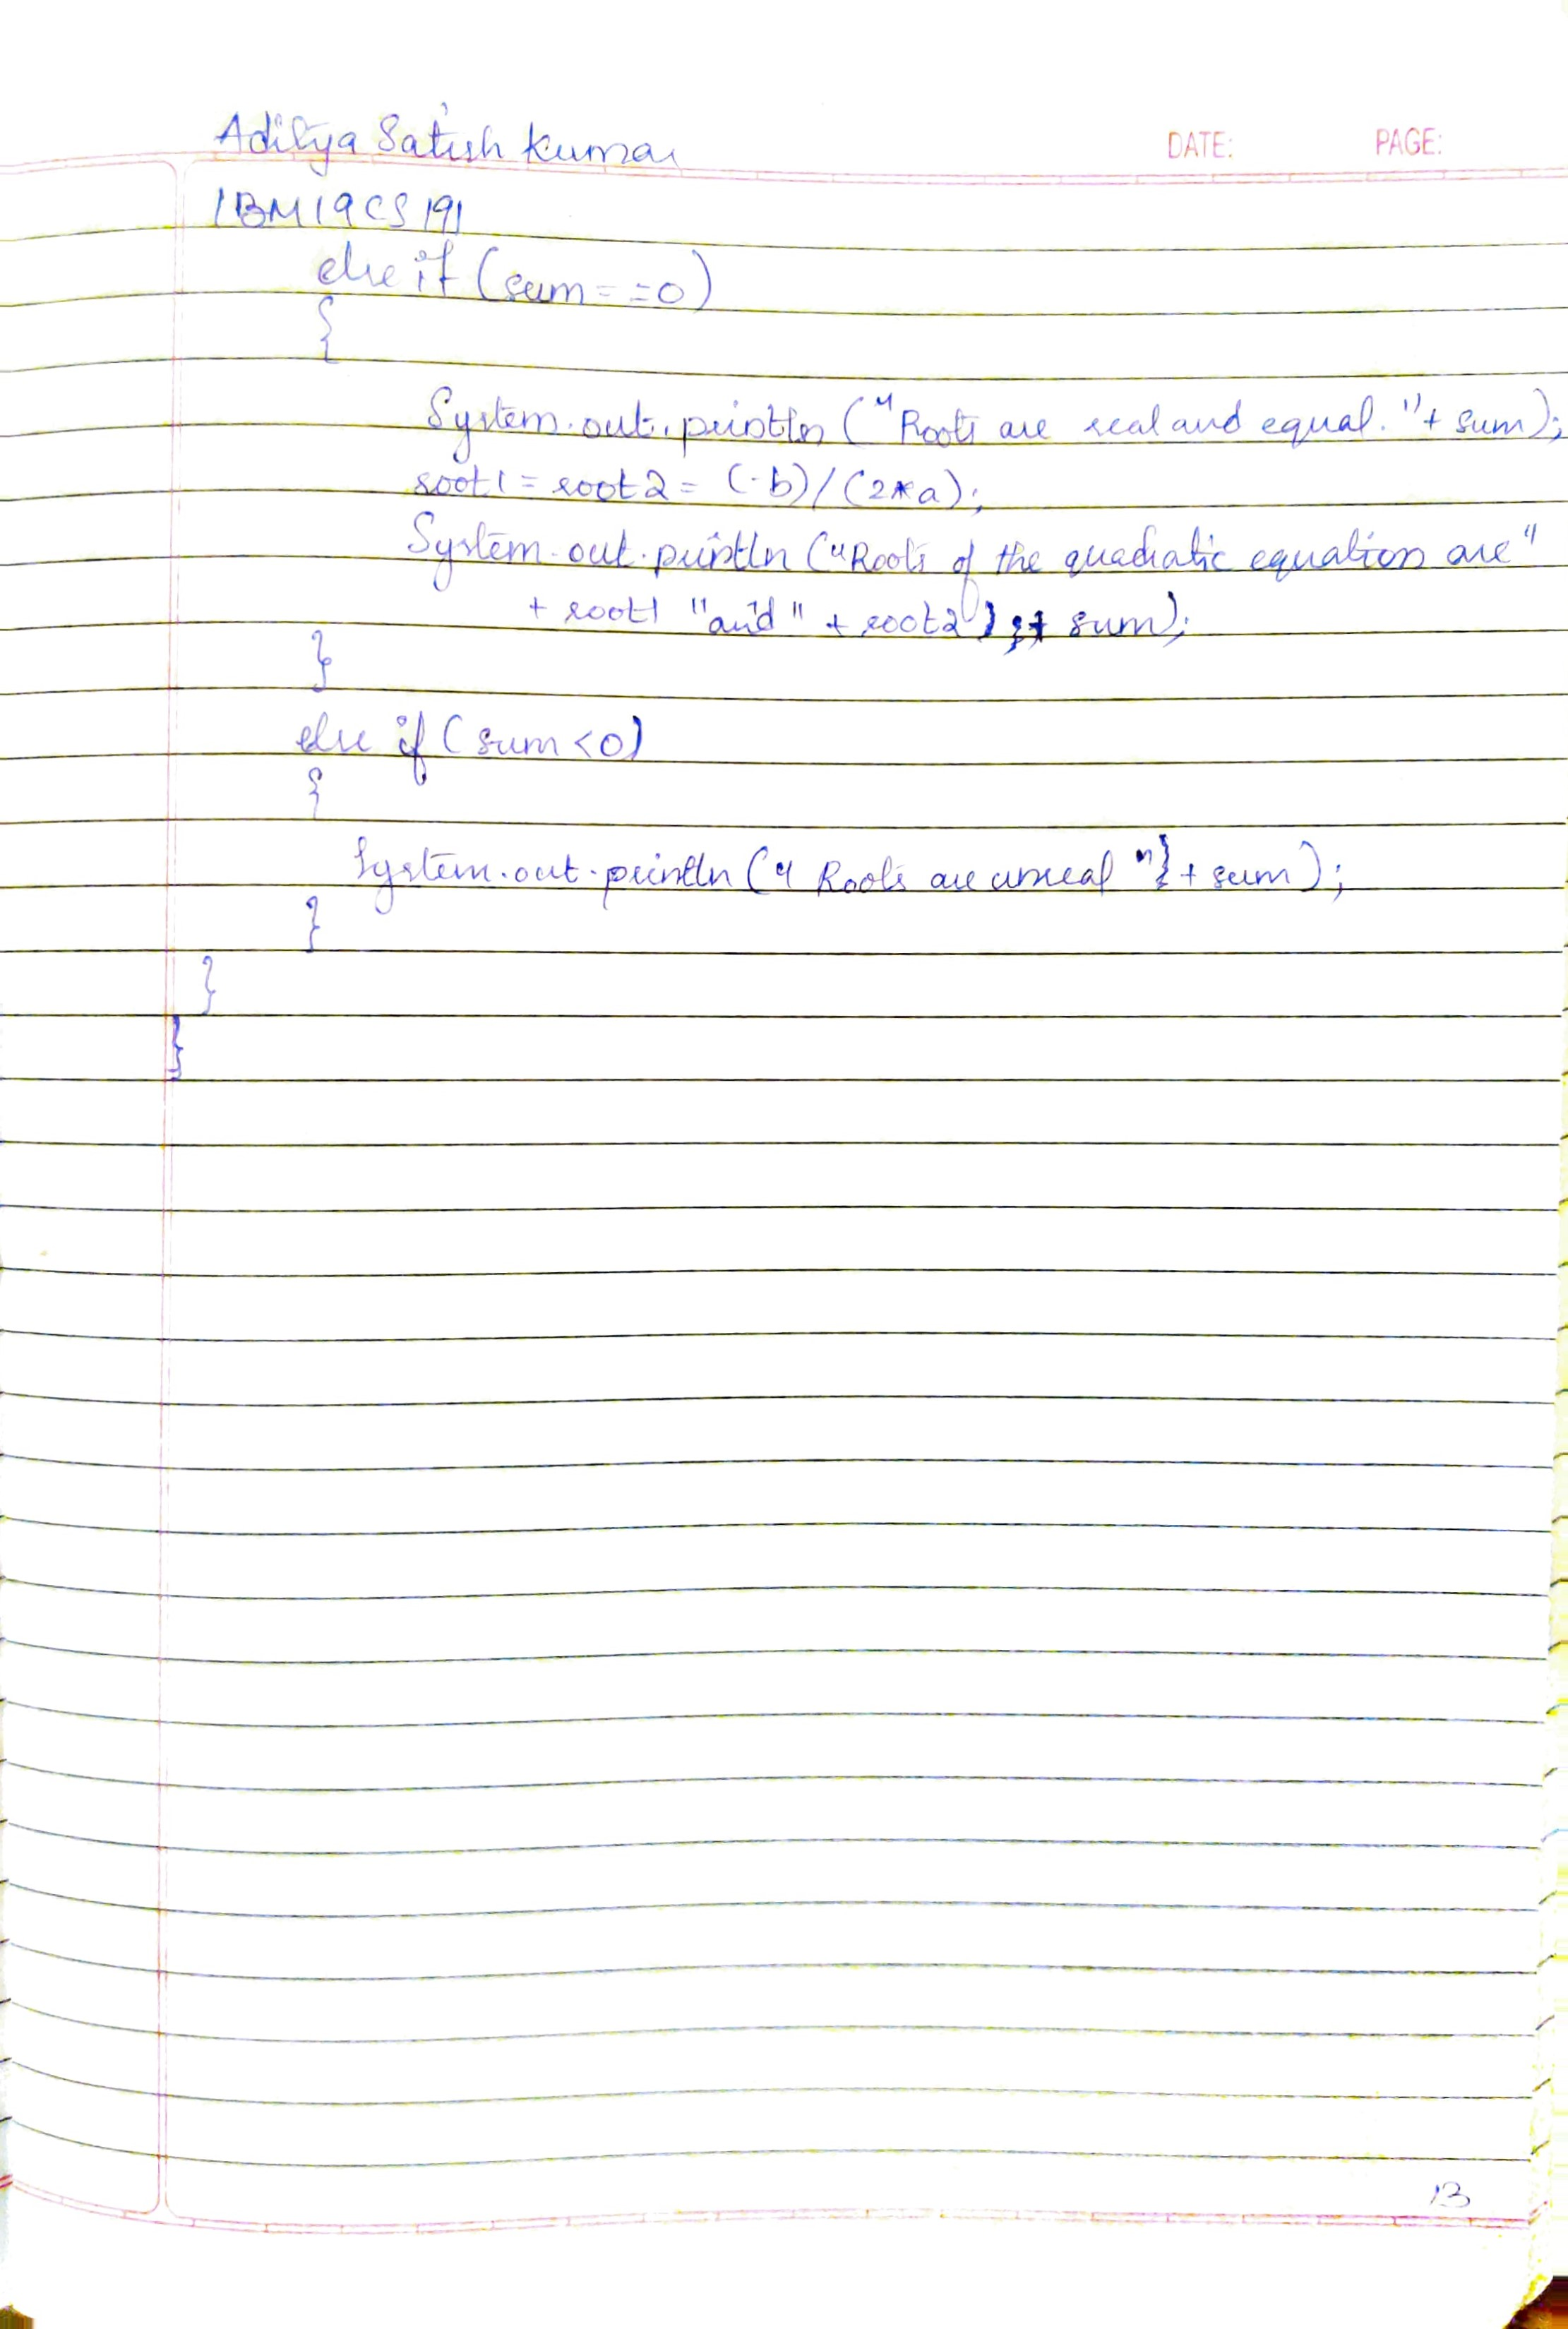 Aditya Satish Kumar
DATE: PAGE:
1BM19CS191
else if (sum==0)
{
System.out.println ("Roots are real and equal. "+ sum);
root1 = root2 = (-b)/(2*a);
System.out.println ("Roots of the quadratic equation are"
+ root1 "and" + root2 + sum);
}
else if (sum<0)
{
System.out.println ("Roots are unreal " + sum);
}
}
}
13